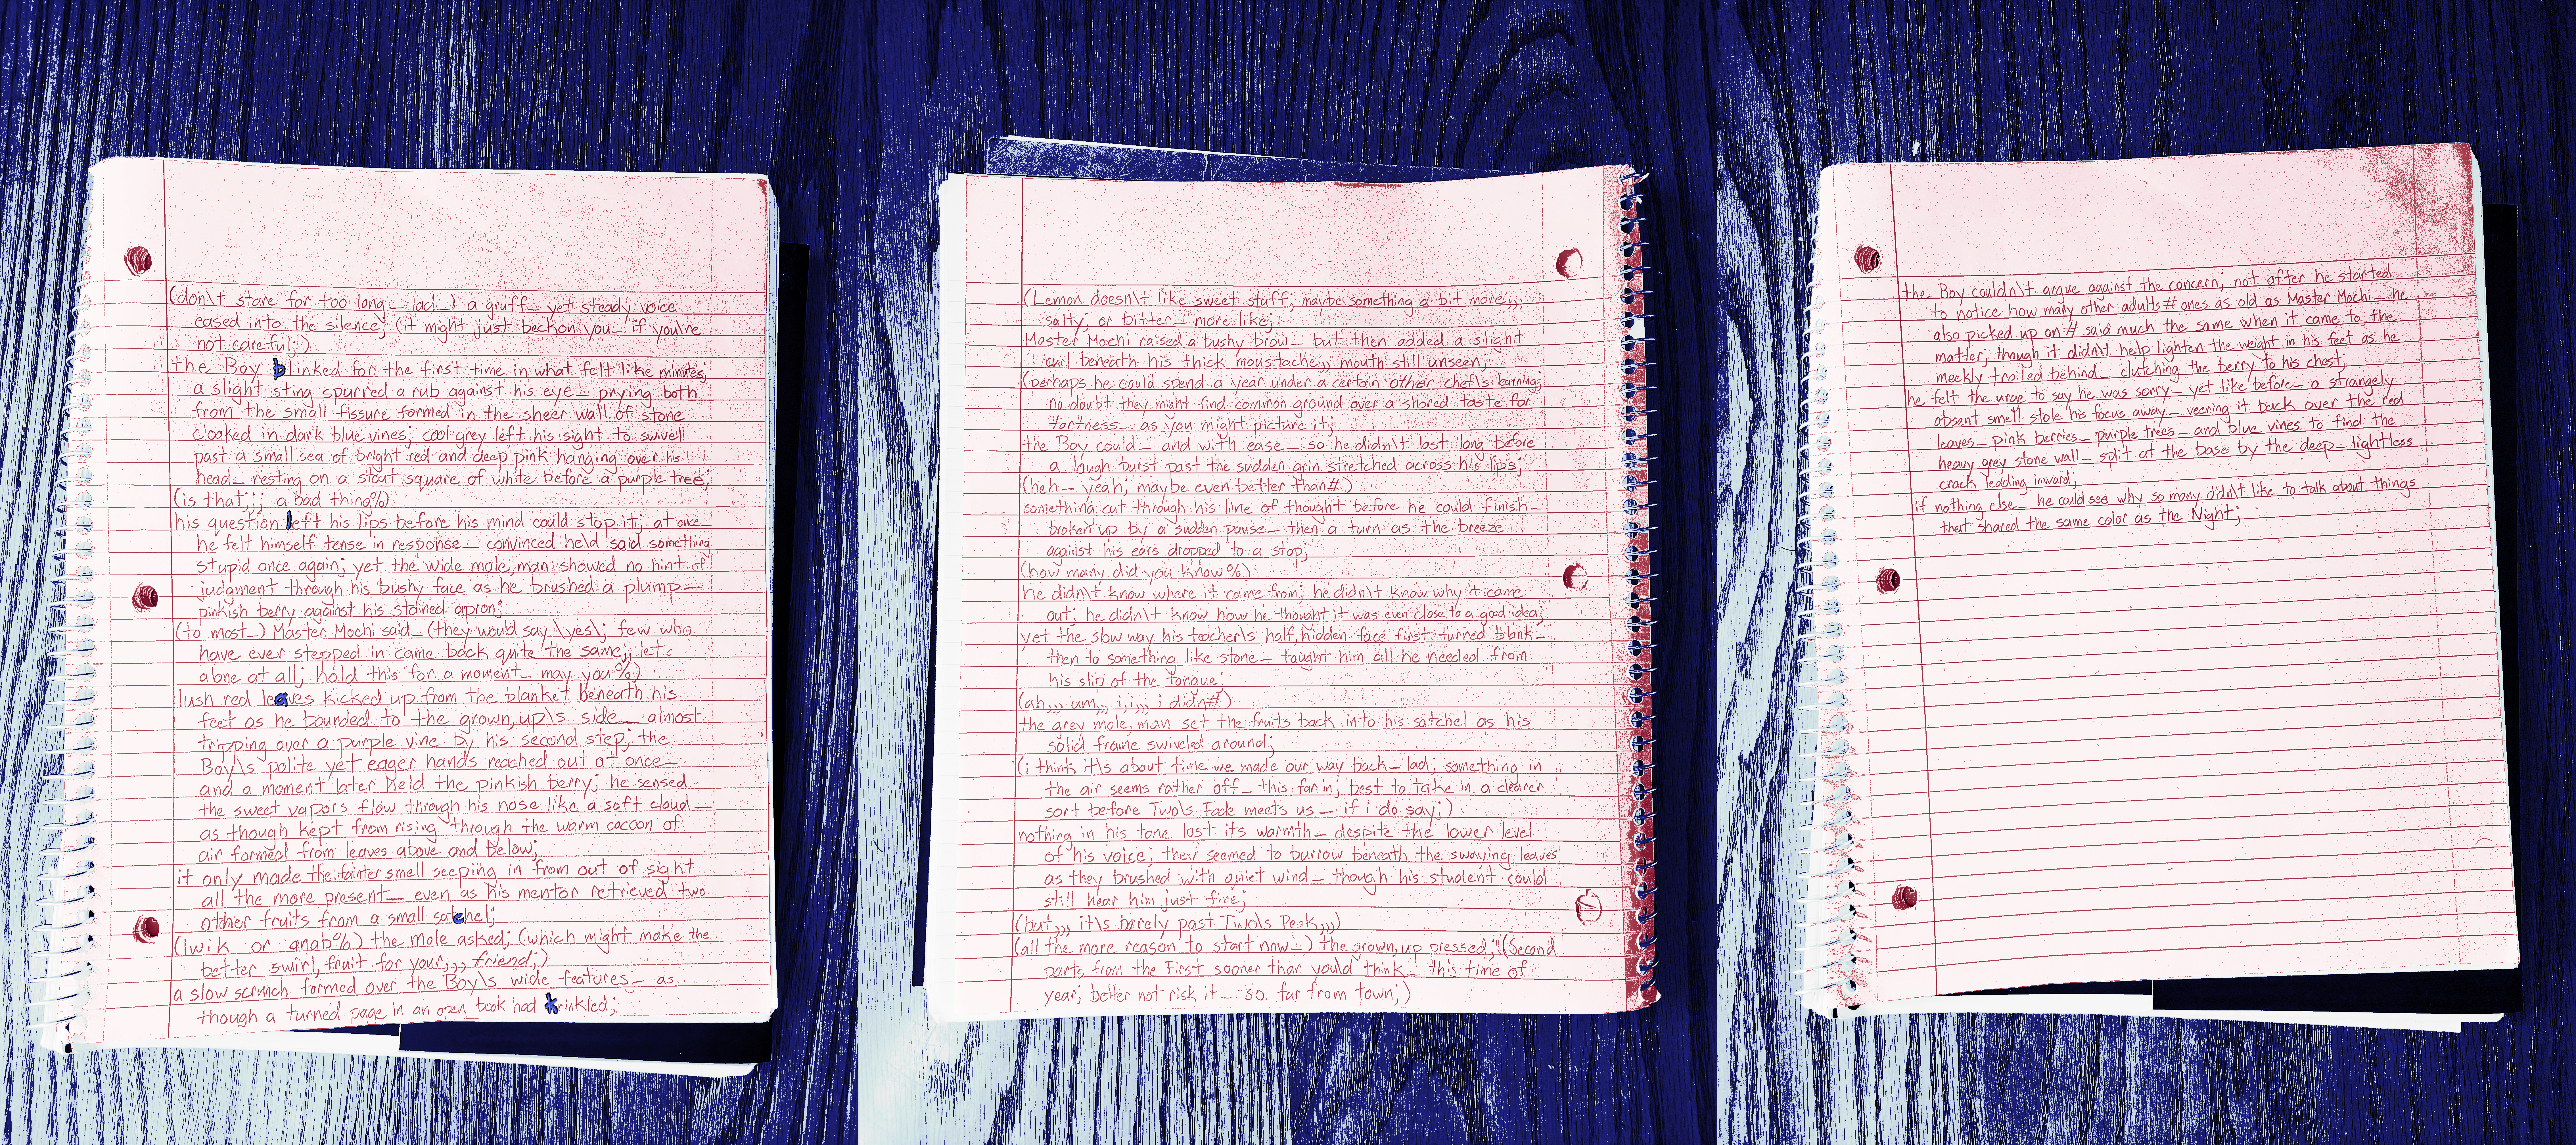 (don\t stare for too long_ lad_) a gruff_ yet steady voice
eased into the silence; (it might just beckon you_ if you\re
not careful;)
the Boy blinked for the first time in what felt like minutes;
a slight sting spurred a rub against his eye_ prying both
from the small fissure formed in the sheer wall of stone
cloaked in dark blue vines; cool grey left his sight to swivell
past a small sea of bright red and deep pink hanging over his
head_ resting on a stout square of white before a purple tree;
(is that;;; a bad thing%)
his question left his lips before his mind could stop it; at once_
he felt himself tense in response_ convinced he\d said something
stupid once again; yet the wide mole,man showed no hint of
judgment through his bushy face as he brushed a plump_
pinkish berry against his stained apron;
(to most_) Master Mochi said_ (they would say \yes\; few who
have ever stepped in came back quite the same;, let
alone at all; hold this for a moment_ may you%)
lush red leaves kicked up from the blanket beneath his
feet as he bounded to the grown,up\s side_ almost
tripping over a purple vine by his second step; the
Boy\s polite yet eager hands reached out at once_
and a moment later held the pinkish berry; he sensed
the sweet vapors flow through his nose like a soft cloud_
as though kept from rising through the warm cocoon of
air formed from leaves above and below;
it only made the fainter smell seeping in from out of sight
all the more present_ even as his mentor retrieved two
other fruits from a small satchel;
(lwik or anab%) the mole asked; (which might make the
better swirl,fruit for your,,, friend;)
a slow scrunch formed over the Boy\s wide features_ as
though a turned page in an open book had krinkled;
(Lemon doesn\t like sweet stuff; maybe something a bit more,,,
salty; or bitter_ more like;
Master Mochi raised a bushy brow_ but then added a slight
curl beneath his thick moustache,, mouth still unseen;
(perhaps he could spend a year under a certain other chef\s learning;
no doubt they might find common ground over a shared taste for
tartness_ as you might picture it;
the Boy could_ and with ease_ so he didn\t last long before
a laugh burst past the sudden grin stretched across his lips;
(heh_ yeah; maybe even better than#)
something cut through his line of thought before he could finish_
broken up by a sudden pause_ then a turn as the breeze
against his ears dropped to a stop;
(how many did you know%)
he didn\t know where it came from; he didn\t know why it came
out; he didn\t know how he thought it was even close to a good idea;
yet the slow way his teacher\s half,hidden face first turned blank_
then to something like stone_ taught him all he needed from
his slip of the tongue;
(ah,,, um,,, i,i,,, i didn#)
the grey mole,man set the fruits back into his satchel as his
solid frame swiveled around;
(i think it\s about time we made our way back_ lad; something in
the air seems rather off_ this far in; best to take in a clearer
sort before Two\s Fade meets us_ if i do say;)
nothing in his tone lost its warmth_ despite the lower level
of his voice; they seemed to burrow beneath the swaying leaves
as they brushed with quiet wind_ though his student could
still hear him just fine;
(but,,, it\s barely past Two\s Peak,,,)
(all the more reason to start now_) the grown,up pressed; (Second
parts from the First sooner than you\d think_ this time of
year; better not risk it_ so far from town;)
the Boy couldn\t argue against the concern; not after he started
to notice how many other adults# ones as old as Master Mochi_ he
also picked up on# said much the same when it came to the
matter; though it didn\t help lighten the weight in his feet as he
meekly trailed behind_ clutching the berry to his chest;
he felt the urge to say he was sorry_ yet like before_ a strangely
absent smell stole his focus away_ veering it back over the red
leaves_ pink berries_ purple trees_ and blue vines to find the
heavy grey stone wall_ split at the base by the deep_ lightless
crack leading inward;
if nothing else_ he could see why so many didn\t like to talk about things
that shared the same color as the Night;